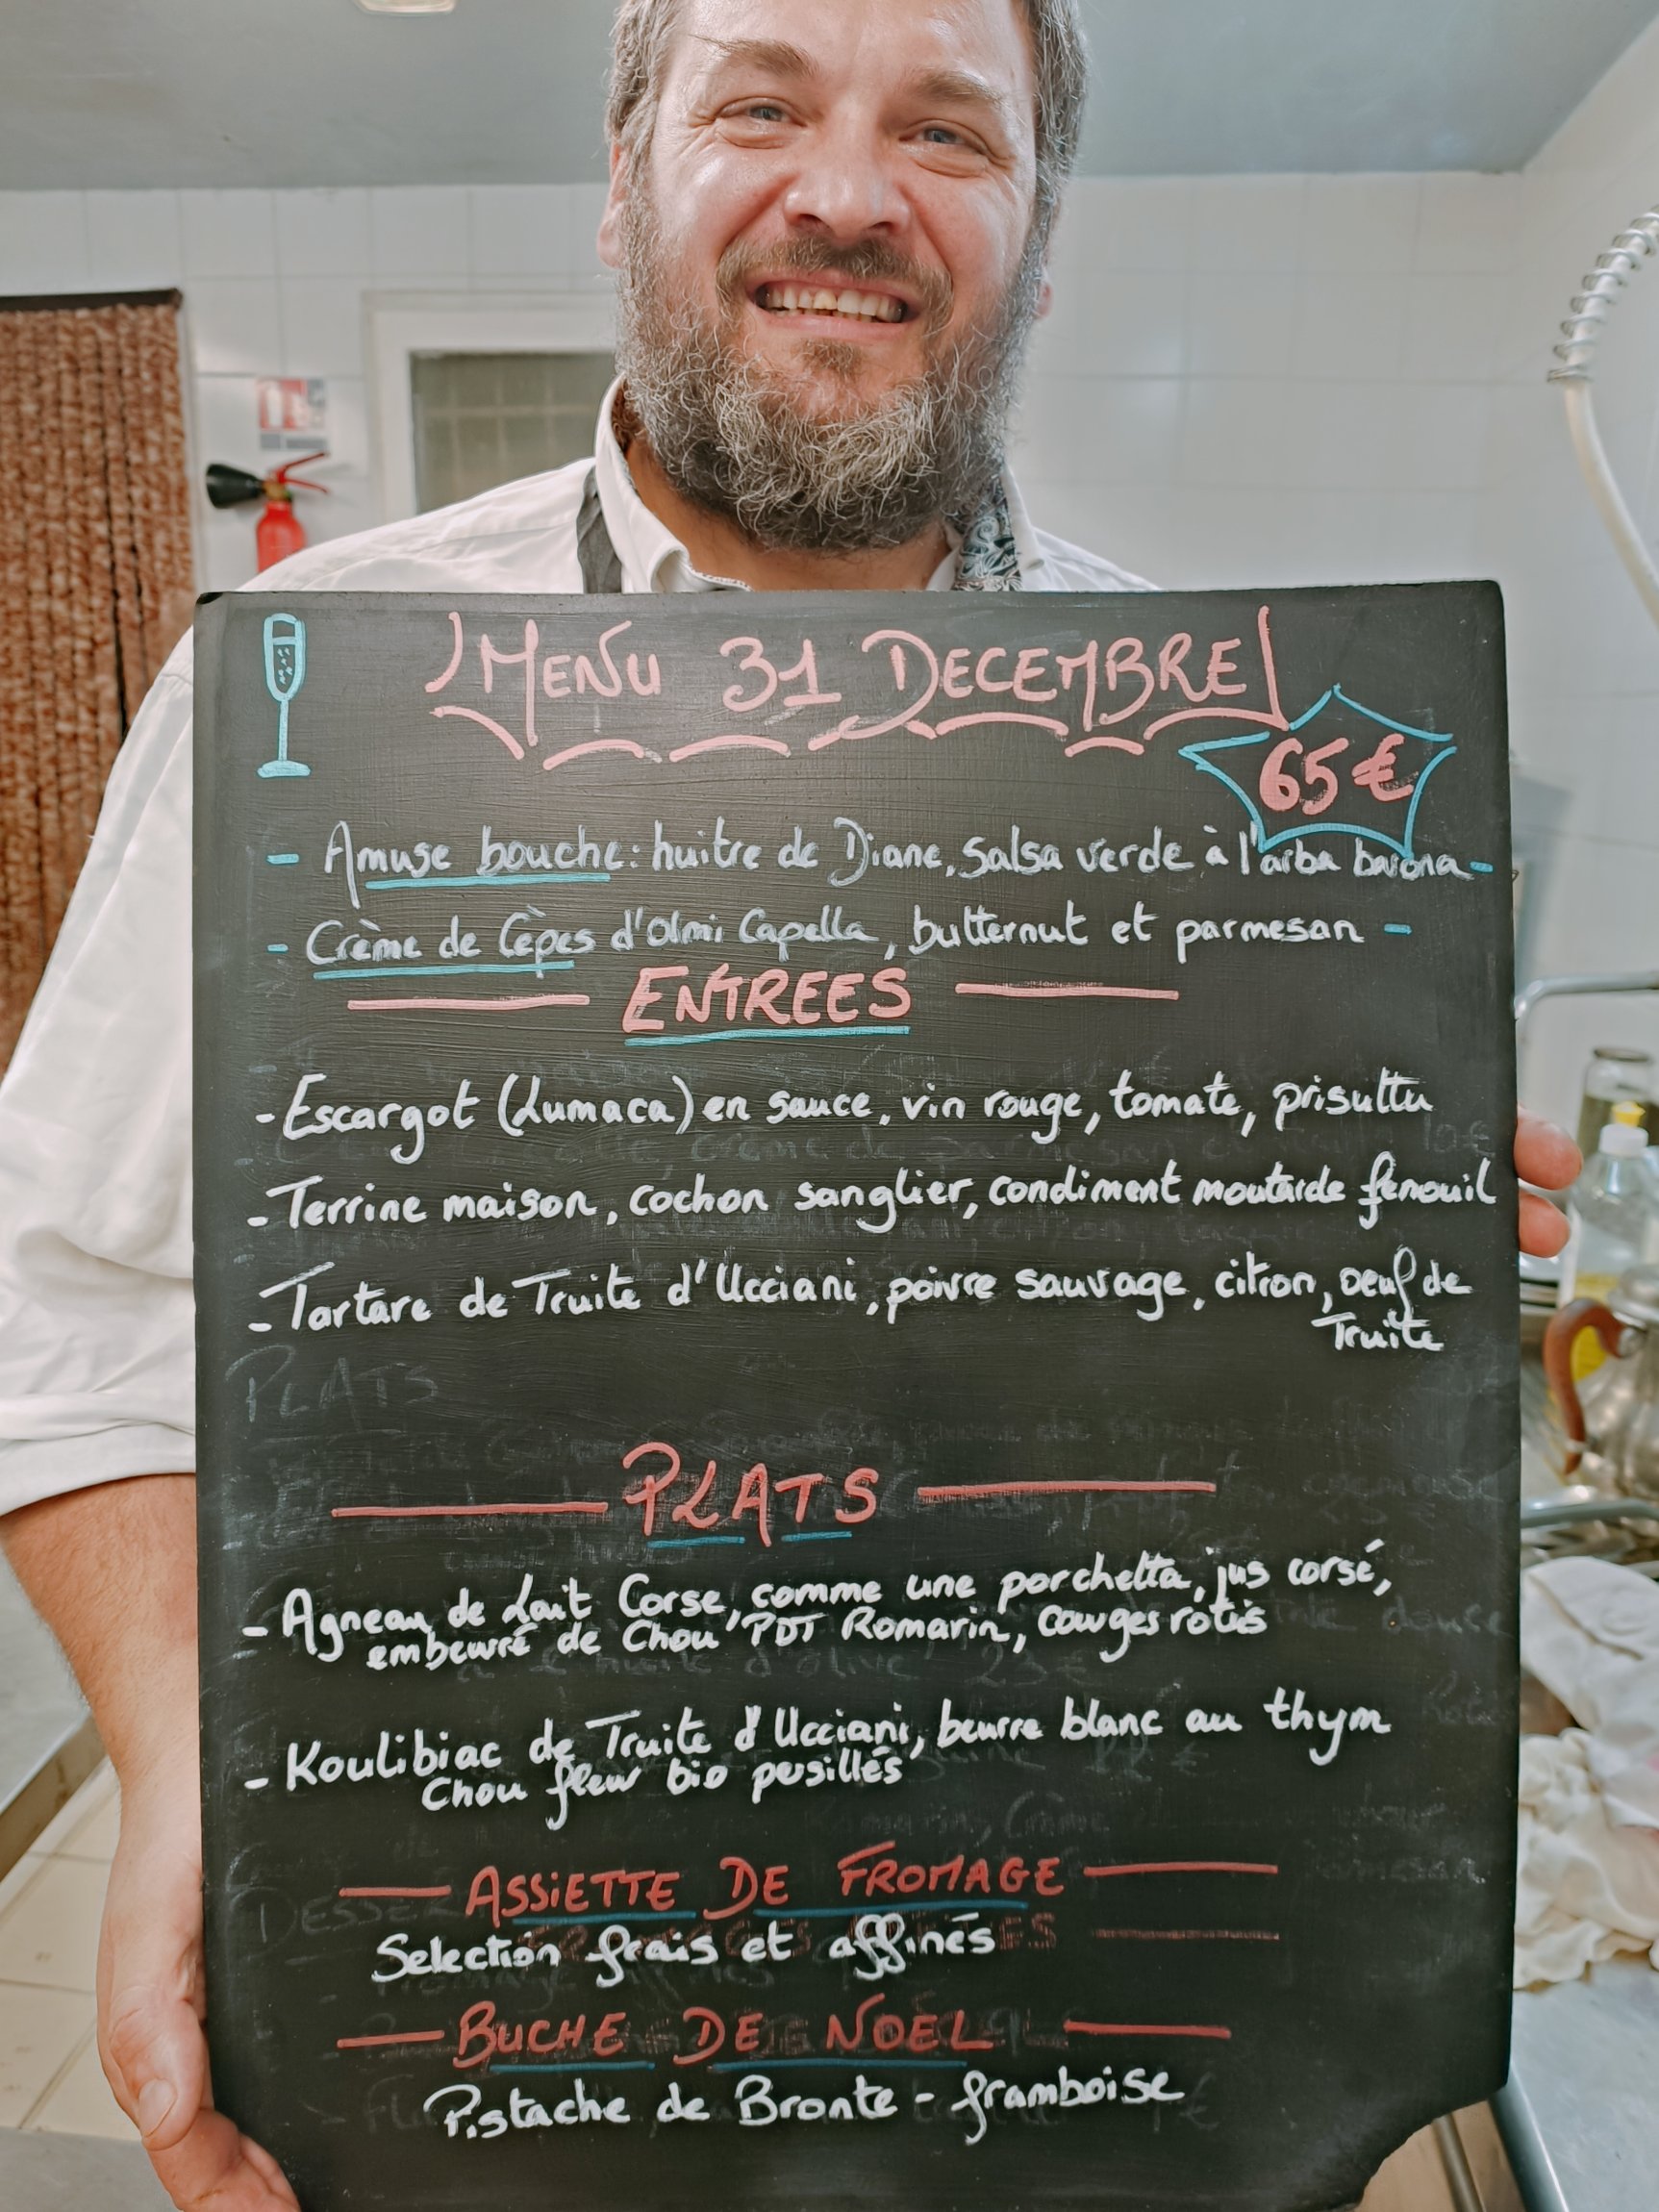 MENU 31 DECEMBRE
65 €
- Amuse bouche : huitre de Diane, Salsa verde à l'arba barona -
- Crème de Cèpes d'Olmi Capella, butternut et parmesan -
ENTREES
- Escargot (Lumaca) en sauce, vin rouge, tomate, prisuttu
- Terrine maison, cochon sanglier, condiment moutarde fenouil
- Tartare de Truite d'Ucciani, poivre sauvage, citron, oeuf de
Truite
PLATS
PLATS
- Agneau de Lait Corse, comme une porchetta, jus corsé,
embeurré de Chou PDT Romarin, courges rotis
- Koulibiac de Truite d'Ucciani, beurre blanc au thym
Chou fleur bio
ASSIETTE DE FROMAGE
Selection frais et affinés
BUCHE DE NOEL
Pistache de Bronte - framboise